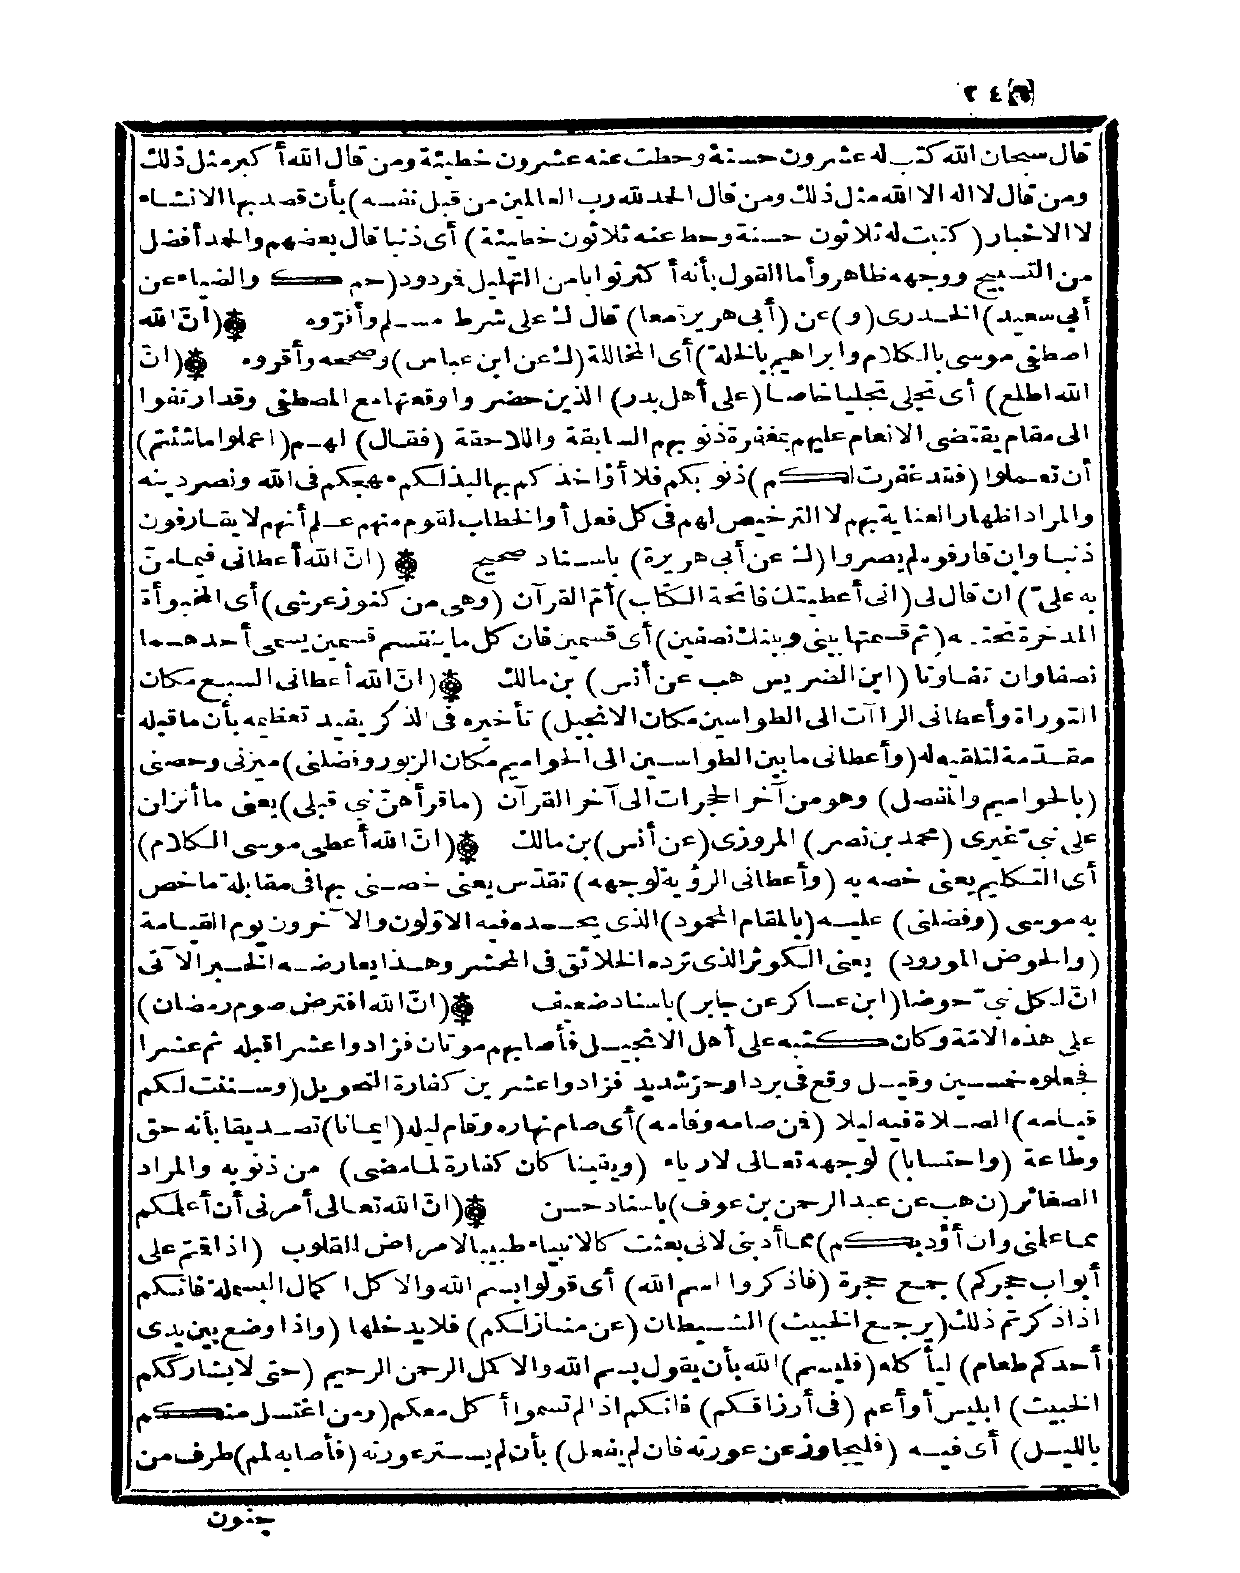 ٢٤٦
قال سبحان الله كتب له عشرون حسنة وحطت عنه عشرون خطيئة ومن قال الله أكبر مثل ذلك
ومن قال لا اله الا الله مثل ذلك ومن قال الحمد لله رب العالمين من قبل نفسه) بأن قصد بها الانشاء
لا الاخبار (كتبت له ثلاثون حسنة وحط عنه ثلاثون خطيئة) أى ذنبا قال بعضهم والحمد أفضل
من التسبيح ووجهه ظاهر وأما القول بأنه أكثر ثوابا من التهليل فردود (حم ك والضياء عن
أبى سعيد) الخدرى (و) عن (أبى هريرة معا) قال ك على شرط مسلم وأقروه (انّ الله
اصطفى موسى بالكلام وابراهيم بالخلة) أى المخاللة (ك عن ابن عباس) وصححه وأقروه (انّ
الله اطلع) أى تجلى تجليا خاصا (على أهل بدر) الذين حضر وا وقعتها مع المصطفى وقد ارتقوا
الى مقام يقتضى الانعام عليهم بمغفرة ذنوبهم السابقة واللاحقة (فقال) لهم (اعملوا ما شئتم)
أن تعملوا (فقد غفرت لكم) ذنوبكم فلا أؤاخذكم بها لبذلكم مهجكم فى الله ونصر دينه
والمراد اظهار العناية بهم لا الترخيص لهم فى كل فعل أو الخطاب لقوم منهم علم أنهم لا يقارفون
ذنبا وان قارفوه لم يصروا (ك عن أبى هريرة) باسناد صحيح (انّ الله أعطانى فيما منّ
به علىّ) ان قال لى (انى أعطيتك فاتحة الكتاب) أمّ القرآن (وهى من كنوز عرشى) أى المخبوأة
المدخرة تحته (ثم قسمتها بينى وبينك نصفين) أى قسمين فان كل ما ينقسم قسمين يسمى أحدهما
نصفا وان تفاوتا (ابن الضريس هب عن أنس) بن مالك (انّ الله أعطانى السبع مكان
التوراة وأعطانى الراآت الى الطواسين مكان الانجيل) تأخيره فى الذكر يفيد تعظيمه بأن ما قبله
مقدّمة لتلقيه له (وأعطانى ما بين الطواسين الى الحواميم مكان الزبور وفضلنى) ميزنى وخصنى
(بالحواميم والمفصل) وهو من آخر الحجرات الى آخر القرآن (ما قرأهنّ نبى قبلى) يعنى ما أنزلن
على نبىّ غيرى (محمد بن نصر) المروزى (عن أنس) بن مالك (انّ الله أعطى موسى الكلام)
أى التكليم يعنى خصه به (وأعطانى الرؤية لوجهه) تقدّس يعنى خصنى بها فى مقابلة ما خص
به موسى (وفضلنى) عليه (بالمقام المحمود) الذى يحمده فيه الاوّلون والآخرون يوم القيامة
(والحوض المورود) يعنى الكوثر الذى ترده الخلائق فى المحشر وهذا يعارضه الخبر الآتى
انّ لكل نبىّ حوضا (ابن عساكر عن جابر) باسناد ضعيف (انّ الله افترض صوم رمضان)
على هذه الامّة وكان كتبه على أهل الانجيل فأصابهم موتان فزادوا عشرا قبله ثم عشرا
فجعلوه خمسين وقيل وقع فى برد أو حرّ شديد فزادوا عشرين كفارة التحويل (وسننت لكم
قيامه) الصلاة فيه ليلا (فمن صامه وقامه) أى صام نهاره وقام ليله (ايمانا) تصديقا بأنه حق
وطاعة (واحتسابا) لوجهه تعالى لا رياء (ويقينا كان كفارة لما مضى) من ذنوبه والمراد
الصغائر (ن هب عن عبد الرحمن بن عوف) باسناد حسن (انّ الله تعالى أمرنى أن أعلمكم
مما علمنى وان أؤدبكم) مما أدبنى لانى بعثت كالانبياء طبيبا لامراض القلوب (اذا قمتم على
أبواب حجركم) جمع حجرة (فاذكروا اسم الله) أى قولوا بسم الله والا كل اكمال البسملة فانكم
اذا ذكرتم ذلك (يرجع الخبيث) الشيطان (عن منازلكم) فلا يدخلها (واذا وضع بين يدى
أحدكم طعام) ليأكله (فليسم) الله بأن يقول بسم الله والاكمل الرحمن الرحيم (حتى لا يشارككم
الخبيث) ابليس أو أعم (فى أرزاقكم) فانكم اذا لم تسموا أكل معكم (ومن اغتسل منكم
بالليل) أى فيه (فليحاوز عن عورته فان لم يفعل) بأن لم يستر عورته (فأصابه لمم) طرف من
جنون